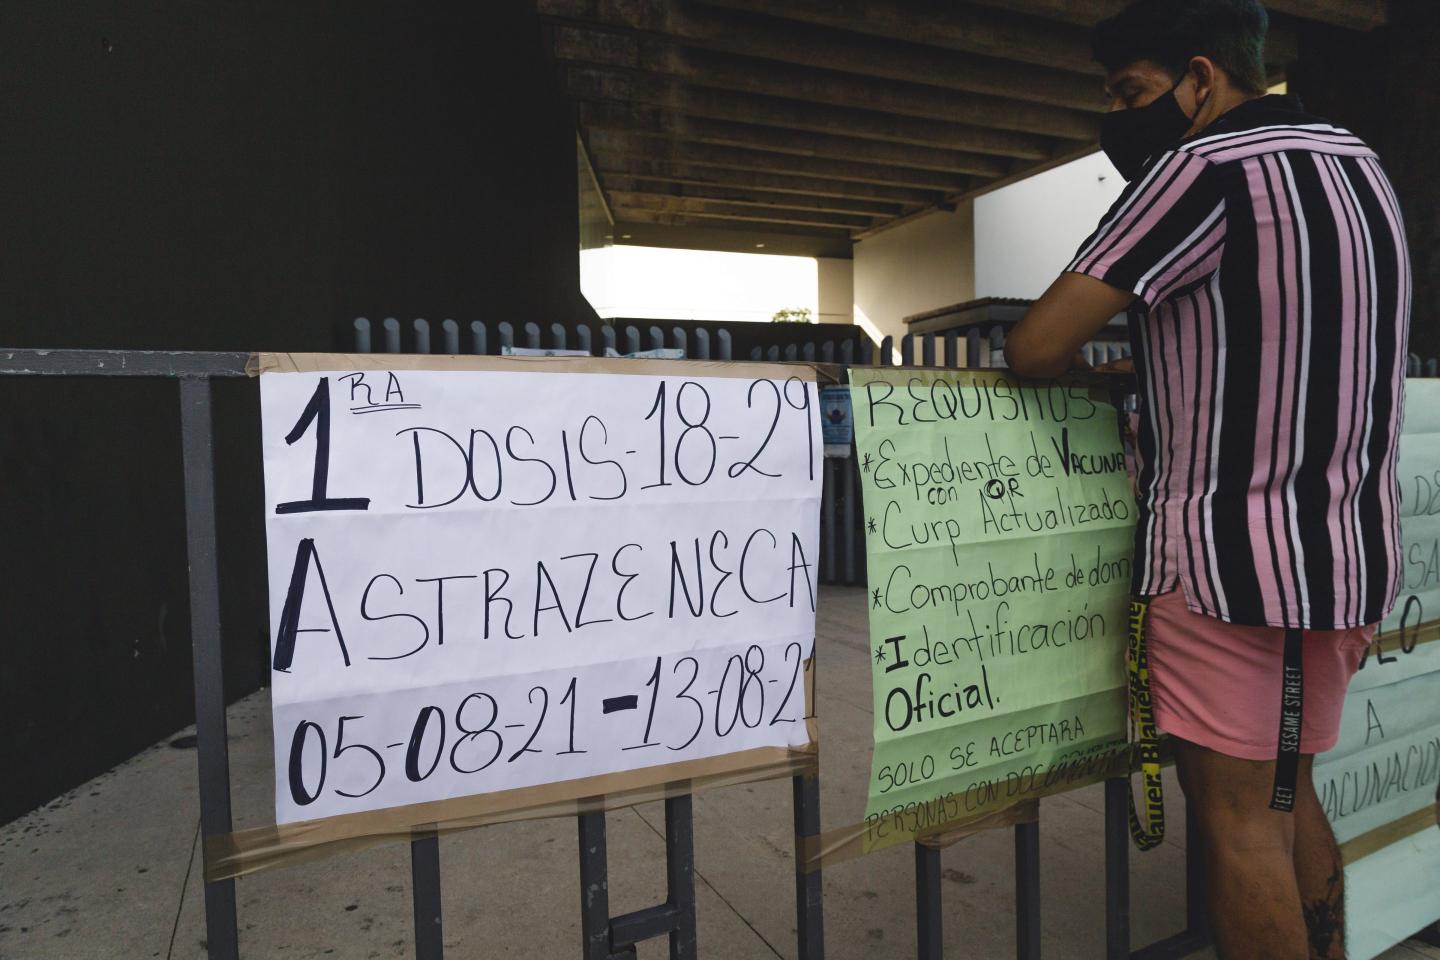 1RA DOSIS-18-29
ASTRAZENECA
05-08-21-13-08-21
REQUISITOS
*Expediente de VACUNA
con QR
*Curp Actualizado
*Comprobante de dom
*Identificación
Oficial.
SOLO SE ACEPTARA
PERSONAS CON DOCUMENT
A
VACUNACION
SESAME STREET